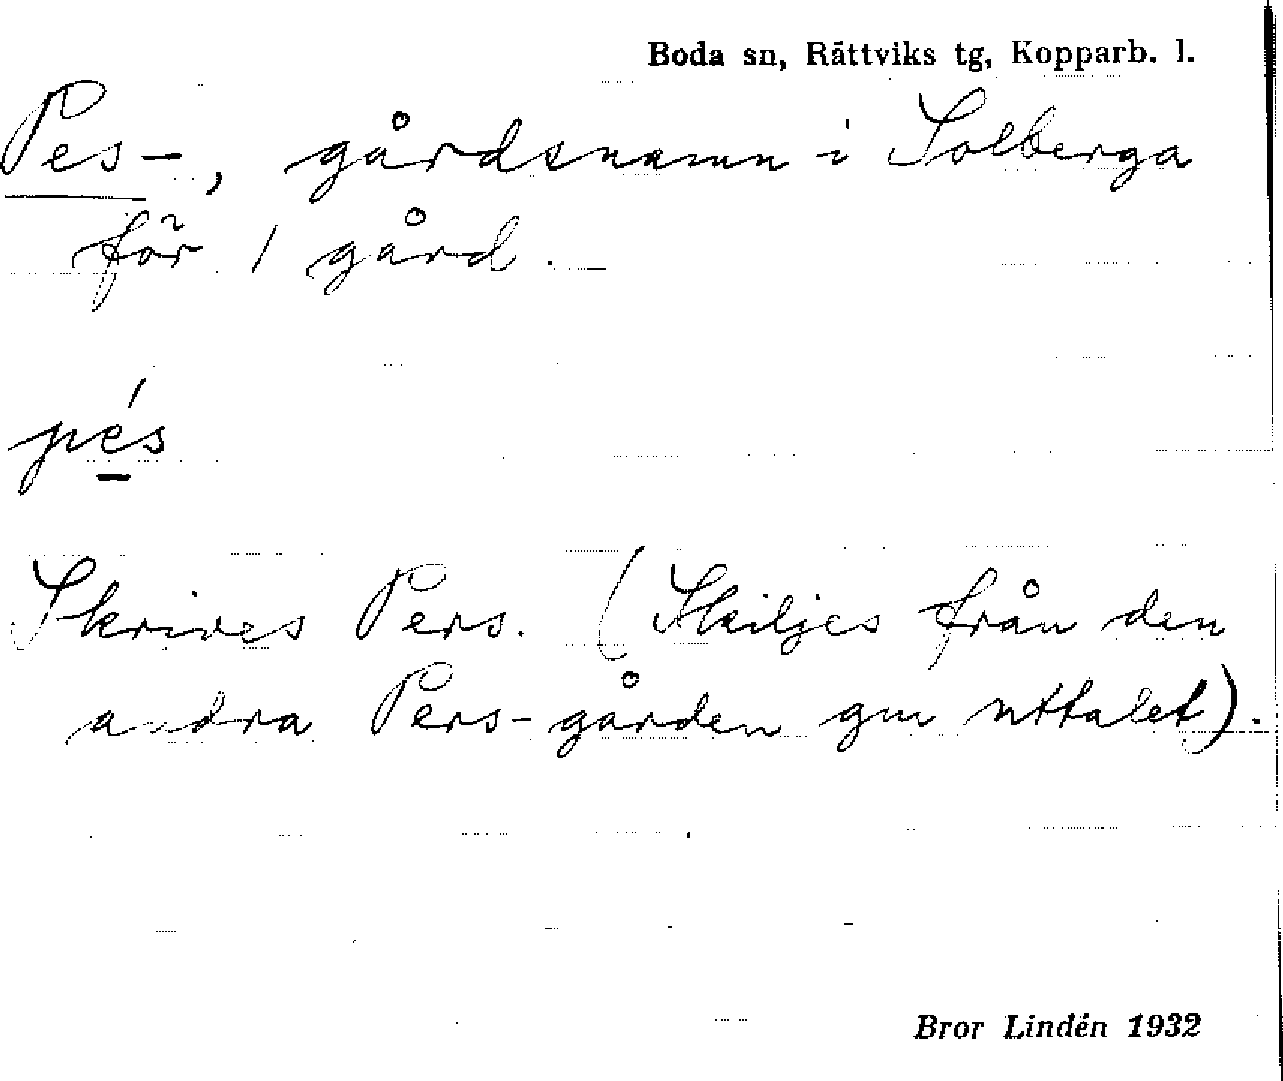 Boda sn, Rättviks tg, Kopparb. l.
Pes-, gårdsnamn i Solberga
för 1 gård.
pés
Skrives Pers. (Skiljes från den
andra Pers-gården gm uttalet).
Bror Lindén 1932